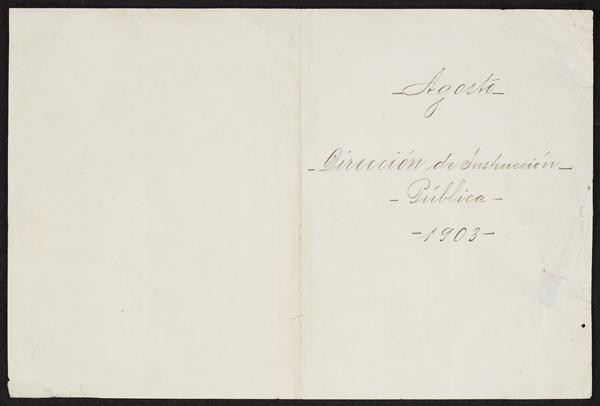 -Agosto-
-Dirección de Instrucción-
-Pública-
-1903-